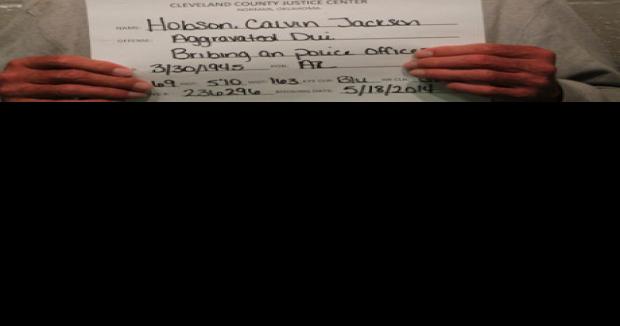 CLEVELAND COUNTY JUSTICE CENTER
NORMAN, OKLAHOMA
NAME: Hobson, Calvin Jackson
OFFENSE: Aggravated Dui
Bribing an police office
3/30/1945 POB: AR
69 510 WGT: 163 EYE CLR: Blu HR CLR:
236296 BOOKING DATE: 5/18/2014